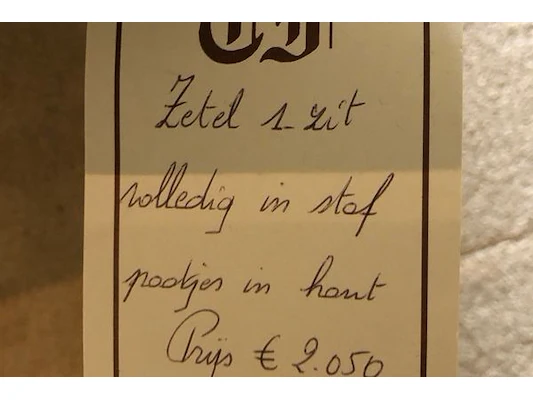 Zetel 1-zit
volledig in stof
pootjes in hout
Prijs € 2.050